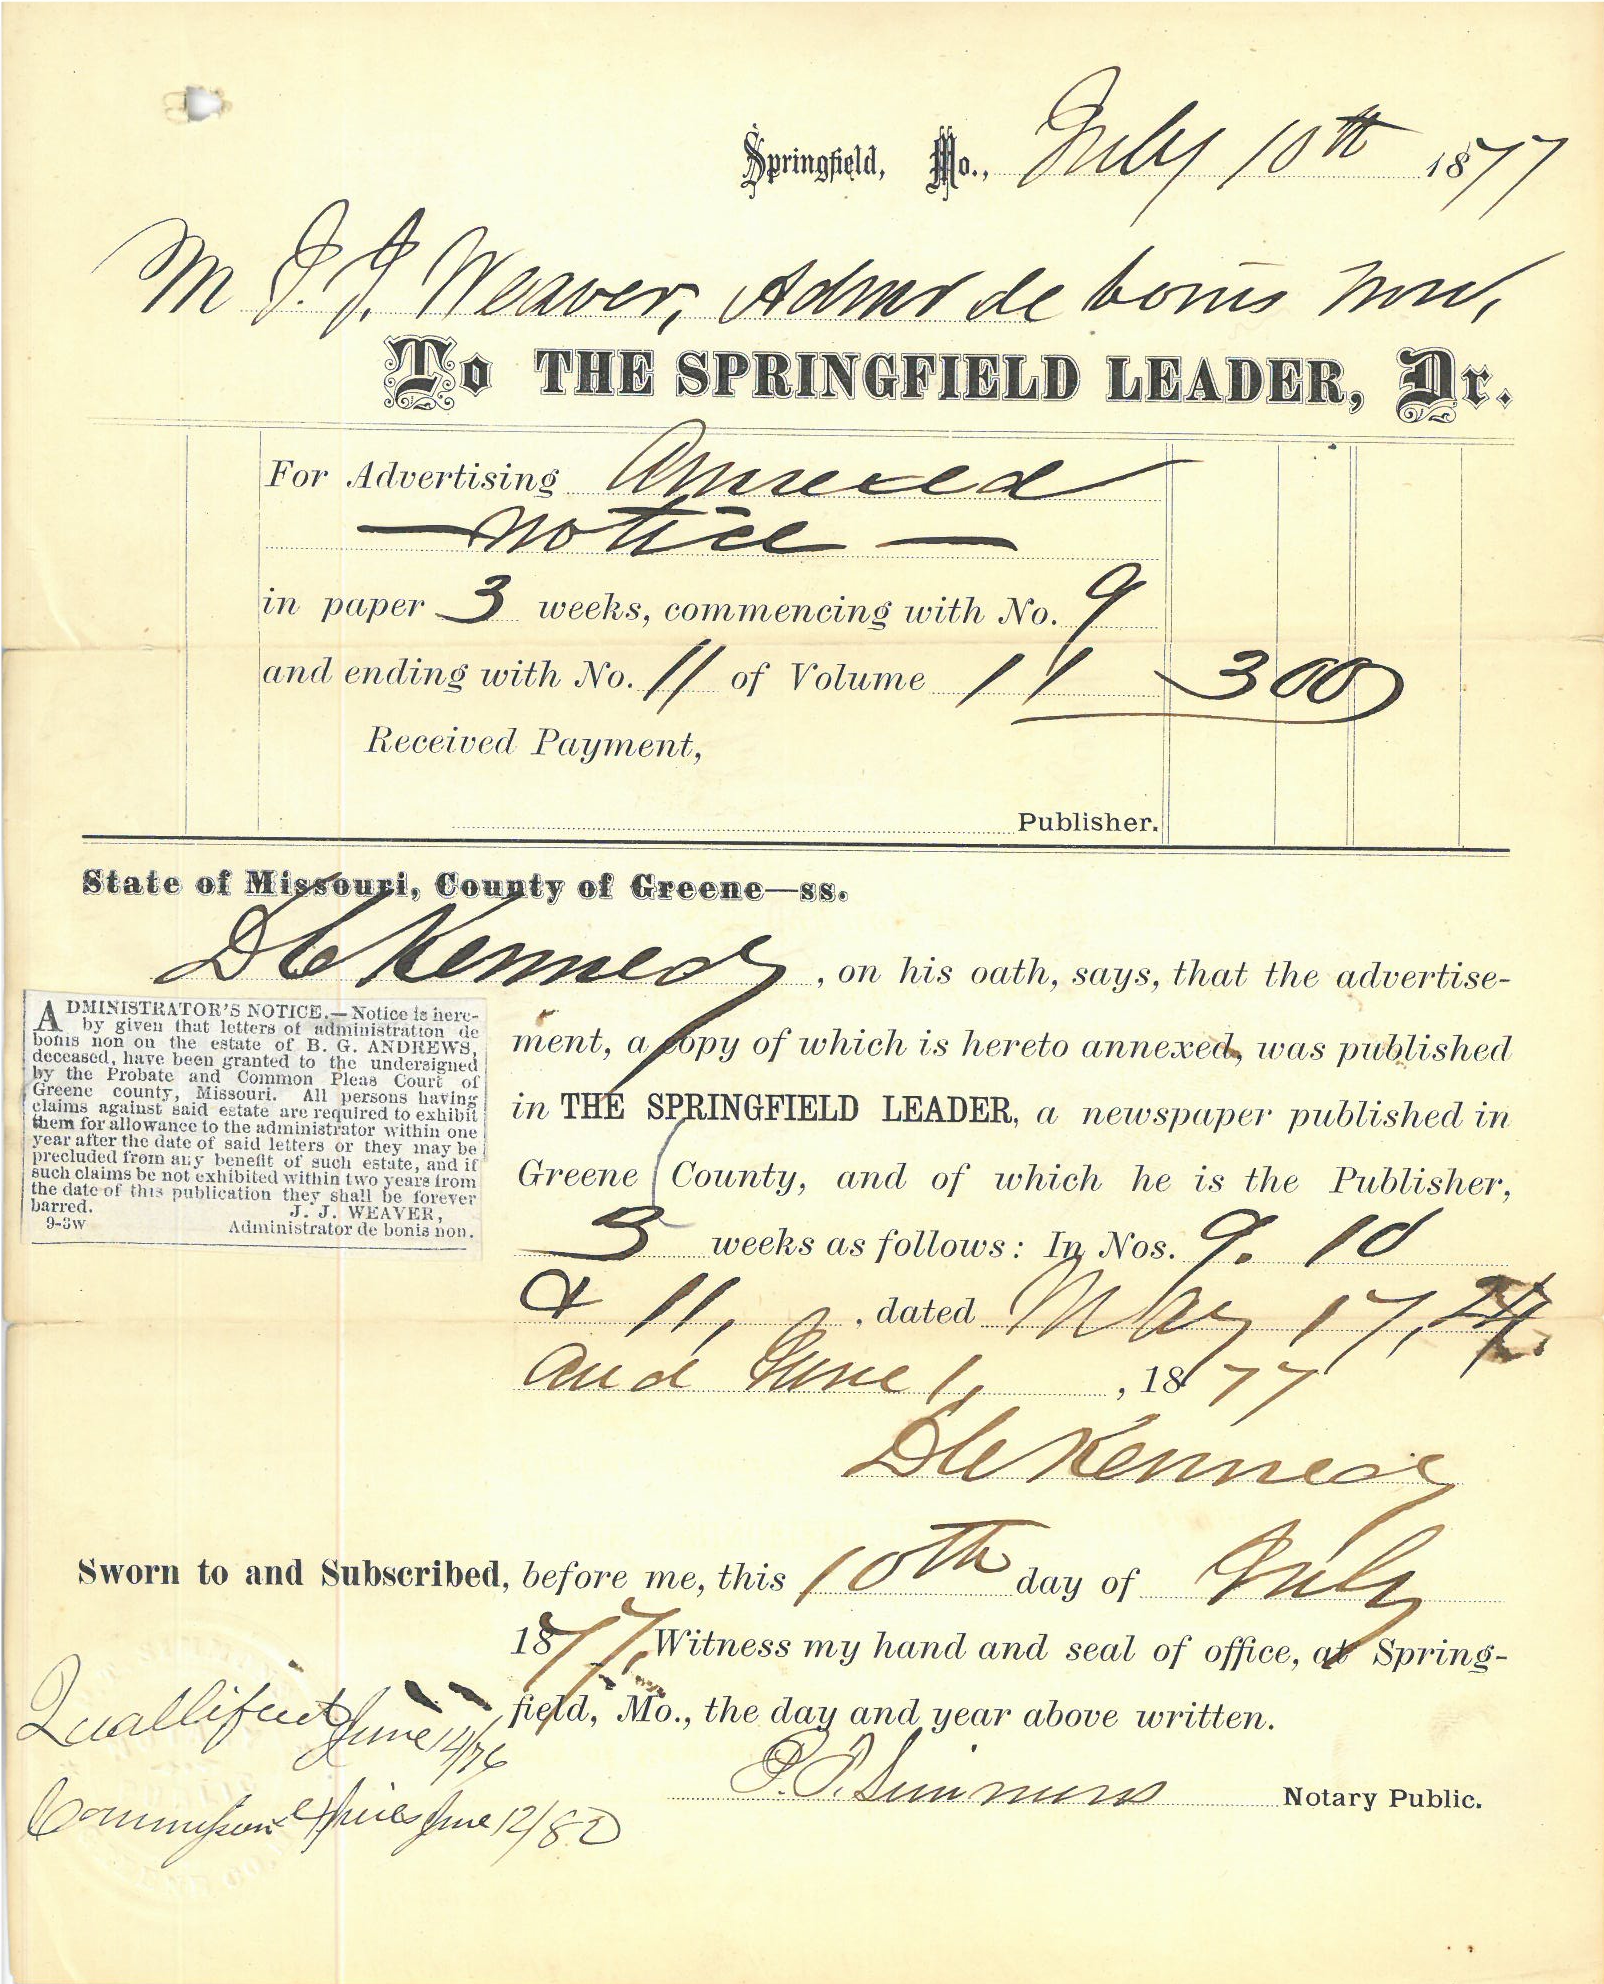 Springfield, Mo., July 10th 1877
M J. J. Weaver, Admr de bonis non,
To THE SPRINGFIELD LEADER, Dr.
For Advertising Annexed
— Notice —
in paper 3 weeks, commencing with No. 9
and ending with No. 11 of Volume 11 300
Received Payment,
Publisher.
State of Missouri, County of Greene—ss.
D C Kennedy, on his oath, says, that the advertise-
ment, a copy of which is hereto annexed, was published
in THE SPRINGFIELD LEADER, a newspaper published in
Greene County, and of which he is the Publisher,
3 weeks as follows: In Nos. 9. 10
& 11, , dated May 17, 24.
and June 1, , 1877
ADMINISTRATOR'S NOTICE.—Notice is here-
by given that letters of administration de
bonis non on the estate of B. G. ANDREWS,
deceased, have been granted to the undersigned
by the Probate and Common Pleas Court of
Greene county, Missouri. All persons having
claims against said estate are required to exhibit
them for allowance to the administrator within one
year after the date of said letters or they may be
precluded from any benefit of such estate, and if
such claims be not exhibited within two years from
the date of this publication they shall be forever
barred. J. J. WEAVER,
9-3w Administrator de bonis non.
D C Kennedy
Sworn to and Subscribed, before me, this 10th day of July
1877. Witness my hand and seal of office, at Spring-
field, Mo., the day and year above written.
Quallified June 14/76
P. P. Simmons Notary Public.
Commission expires June 12/80